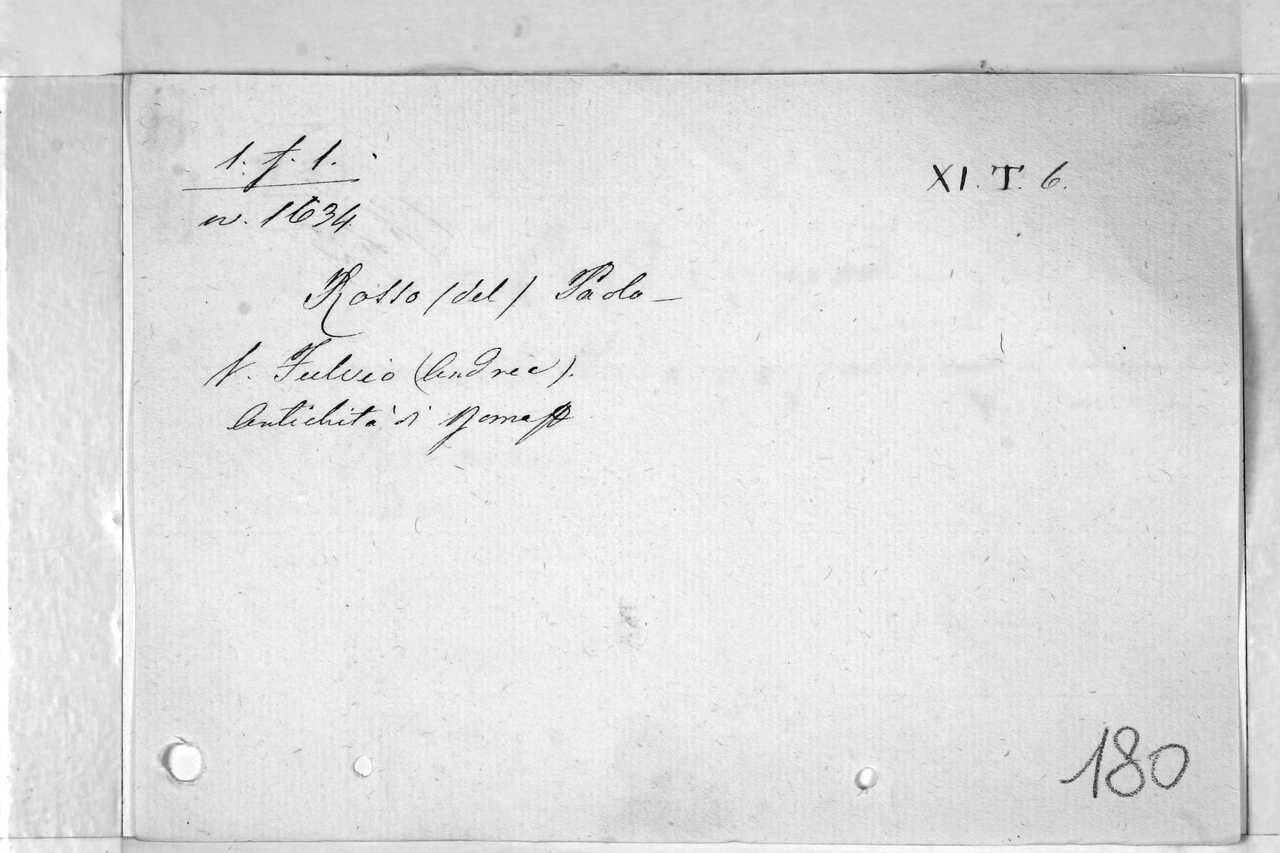 1. f. 1.
XI. T. 6.
n. 1634
Rosso (del) Paolo —
V. Fulvio (Andrea).
Antichità di Roma
180